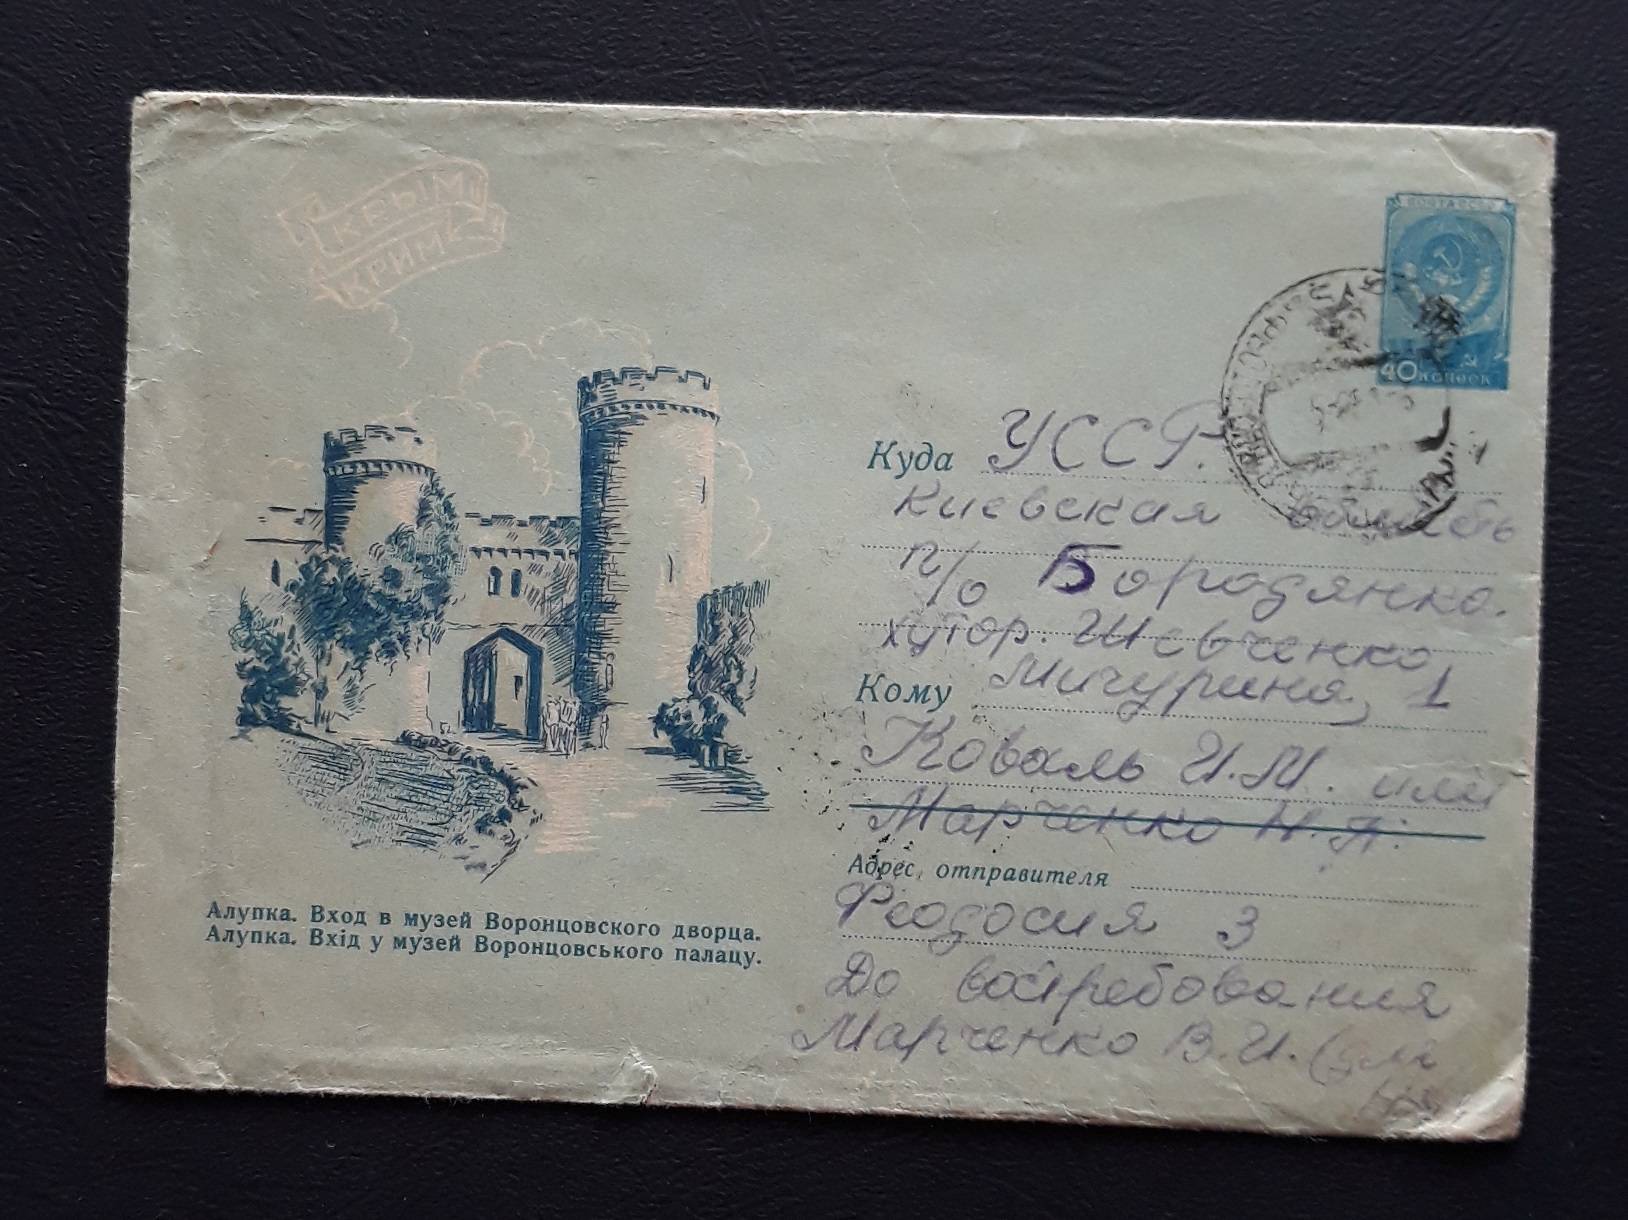 КРЫМ
КРИМ
ПОЧТА СССР
40 КОПЕЕК
Куда УССР.
Киевская область
п/о Бородянка.
хутор. Шевченко,
Мичурина, 1
Кому
Коваль И.М. или
Марченко Н.П.
Адрес отправителя
Феодосия 3
До востребования
Марченко В.И. (для
Алупка. Вход в музей Воронцовского дворца.
Алупка. Вхід у музей Воронцовського палацу.